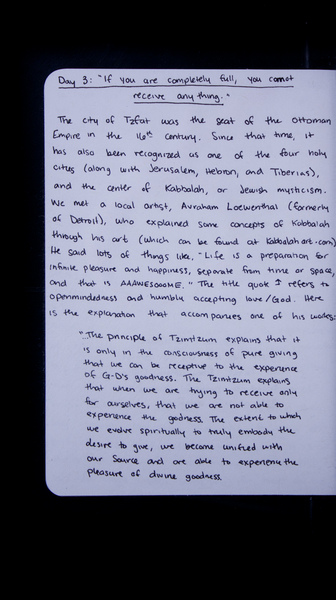 Day 3: "If you are completely full, you cannot
receive anything."
The city of Tzfat was the seat of the Ottoman
Empire in the 16th century. Since that time, it
has also been recognized as one of the four holy
cities (along with Jerusalem, Hebron, and Tiberias),
and the center of Kabbalah, or Jewish mysticism.
We met a local artist, Avraham Loewenthal (formerly
of Detroit), who explained some concepts of Kabbalah
through his art (which can be found at Kabbalahart.com)
He said lots of things like, "Life is a preparation for
infinite pleasure and happiness, separate from time or space,
and that is AAAWESOOOME." The title quote ↑ refers to
openmindedness and humbly accepting love/God. Here
is the explanation that accompanies one of his works:
"The principle of Tzimtzum explains that it
is only in the consciousness of pure giving
that we can be receptive to the experience
of G-D's goodness. The Tzimtzum explains
that when we are trying to receive only
for ourselves, that we are not able to
experience the goodness. The extent to which
we evolve spiritually to truly embody the
desire to give, we become unified with
our Source and are able to experience the
pleasure of divine goodness.